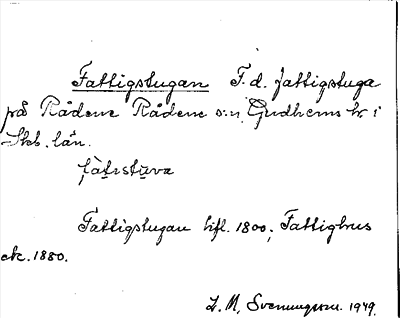 Fattigstugan F.d. fattigstuga
på Rådene Rådene s:n, Gudhems hr i
Skb. län.
fàtıstùva
Fattigstugan hfl. 1800; Fattighus
ek. 1880.
L. M. Svenungsson. 1949.